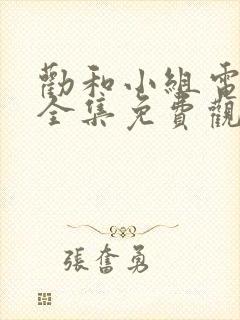 勸和小組電
全集免費觀
張奮勇